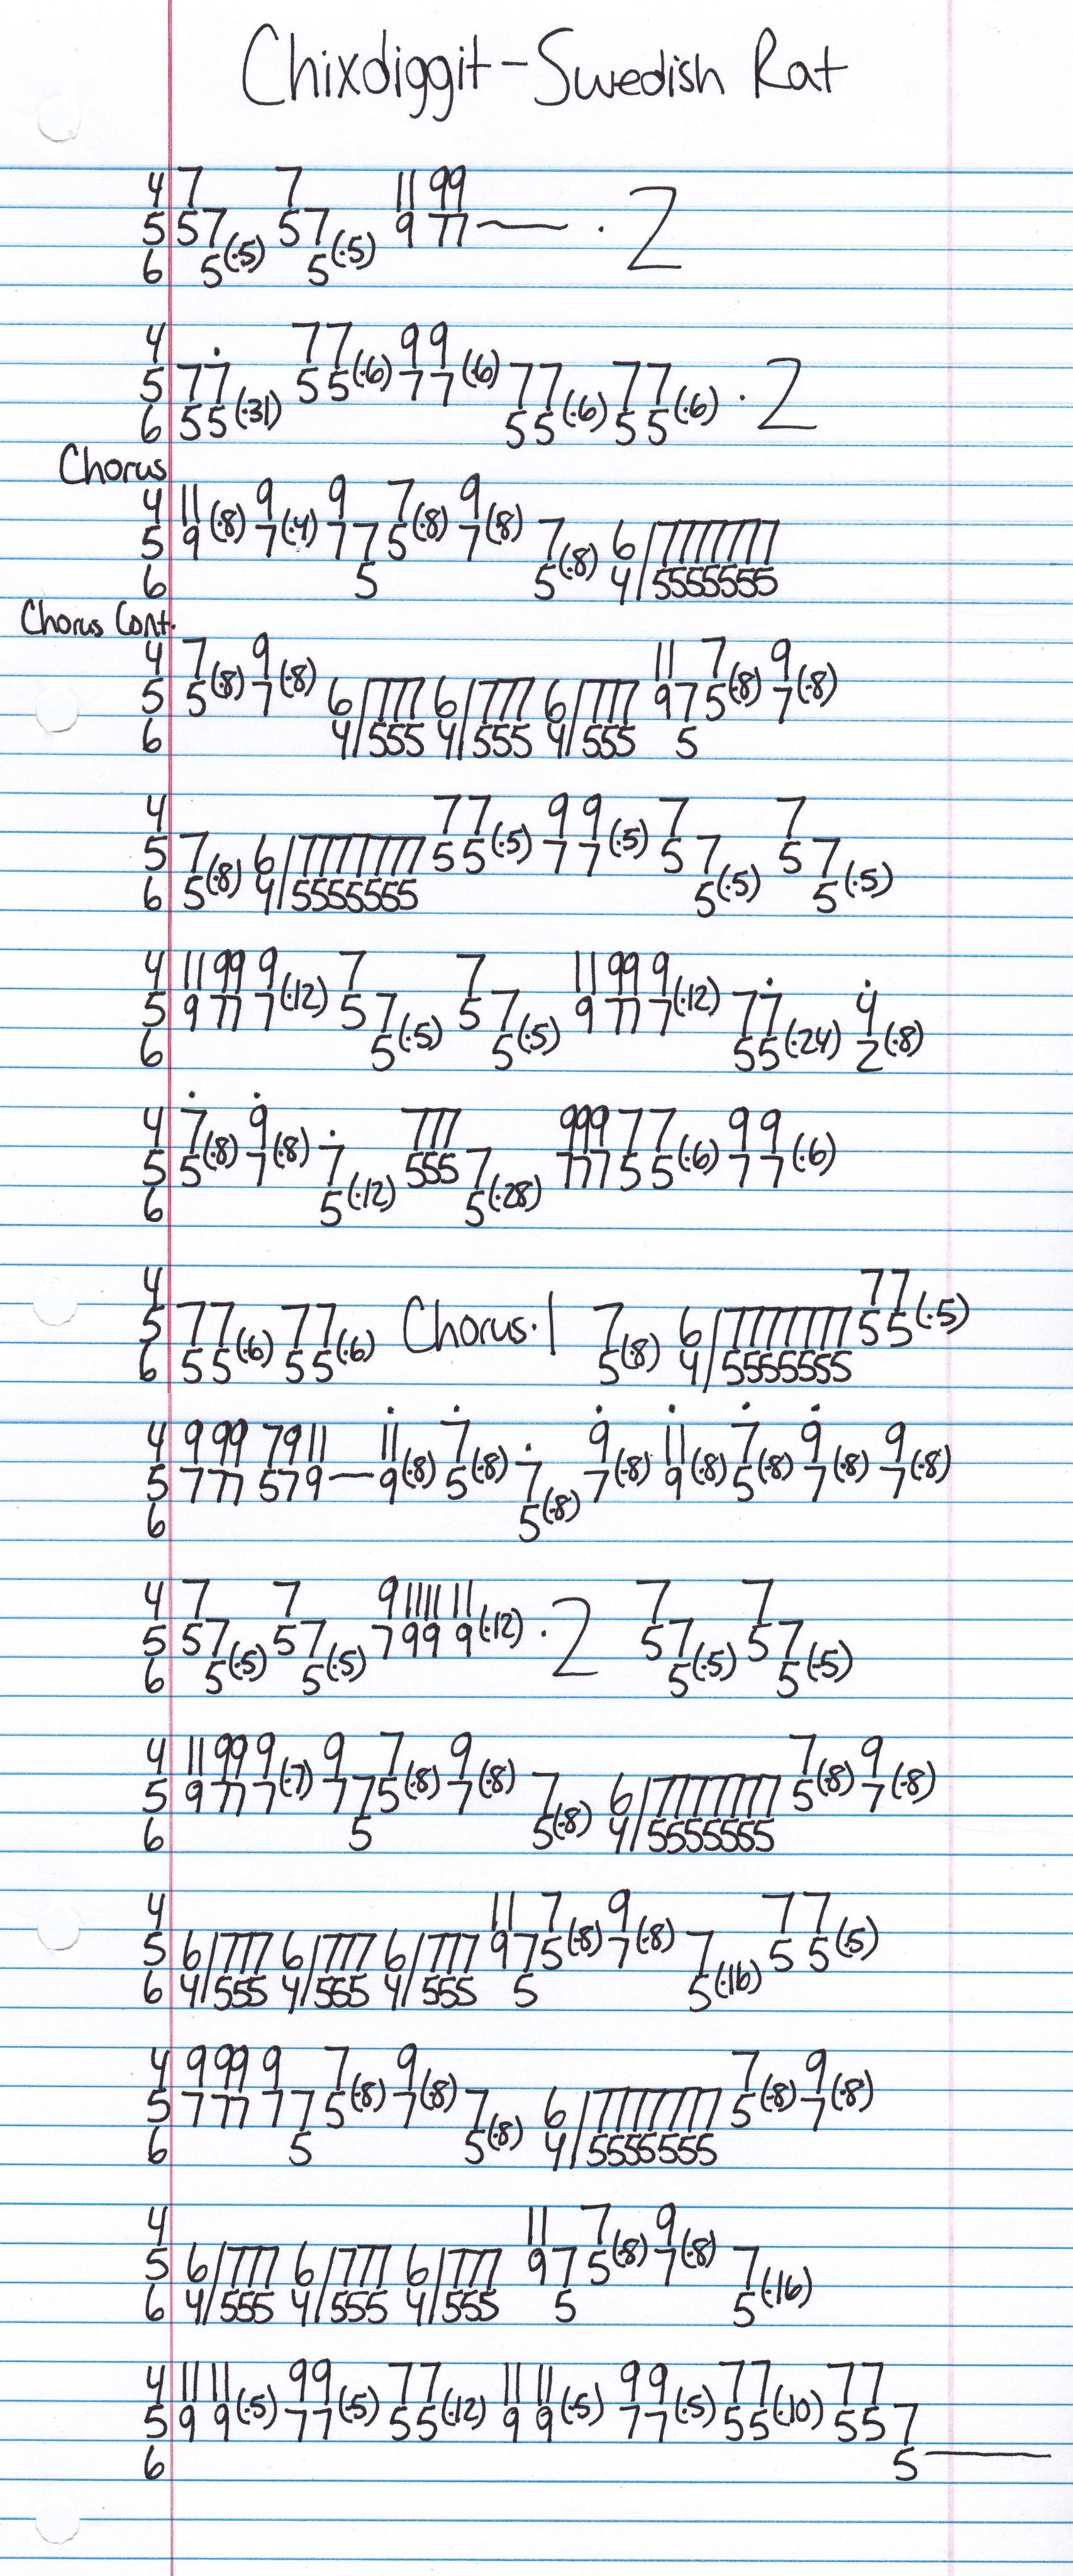 Chixdiggit - Swedish Rat
4 7 7 11 99
5 57(·5) 57(·5) 9 77 — · 2
6 5 5
4 77(·6) 99(·6)
5 77 55 77 77 77 · 2
6 55(·31) 55(·6) 55(·6)
Chorus
4 11(·8) 9(·4) 9 7(·8) 9(·8)
5 9 7 77 5 7 7 6/7777777
6 5 5(·8) 4/5555555
Chorus Cont.
4 7(·8) 9(·8) 11 7(·8) 9(·8)
5 5 7 6/777 6/777 6/777 97 5 7
6 4/555 4/555 4/555 5
4 77(·5) 99(·5) 7 7
5 7 6/7777777 55 77 57 57
6 5(·8) 4/5555555 5(·5) 5(·5)
4 11 99 9(·12) 7 7 11 99 9(·12)
5 9 77 7 57 57 9 77 7 77 4
6 5(·5) 5(·5) 55(·24) 2(·8)
4 7(·8) 9(·8) 777 999 77(·6) 99(·6)
5 5 7 7 555 7 777 55 77
6 5(·12) 5(·28)
4 77(·5)
5 77 77 Chorus·1 7 6/7777777 55
6 55(·6) 55(·6) 5(·8) 4/5555555
4 9 99 7911 11(·8) 7(·8) 9(·8) 11(·8) 7(·8) 9(·8) 9(·8)
5 7 77 579 — 9 5 7 7 9 5 7 7
6 5(·8)
4 7 7 9 1111 11(·12) 7 7
5 57 57 7 99 9 · 2 57 57
6 5(·5) 5(·5) 5(·5) 5(·5)
4 11 99 9(·7) 9 7(·8) 9(·8) 7(·8) 9(·8)
5 9 77 7 77 5 7 7 6/7777777 5 7
6 5 5(·8) 4/5555555
4 11 7(·8) 9(·8) 77(·5)
5 6/777 6/777 6/777 97 5 7 7 55
6 4/555 4/555 4/555 5 5(·16)
4 9 99 9 7(·8) 9(·8) 7(·8) 9(·8)
5 7 77 77 5 7 7 6/7777777 5 7
6 5 5(·8) 4/5555555
4 11 7(·8) 9(·8)
5 6/777 6/777 6/777 97 5 7 7
6 4/555 4/555 4/555 5 5(·16)
4 11 11(·5) 99(·5) 77(·12) 11 11(·5) 99(·5) 77(·10) 77
5 9 9 77 55 9 9 77 55 55 7
6 5 —